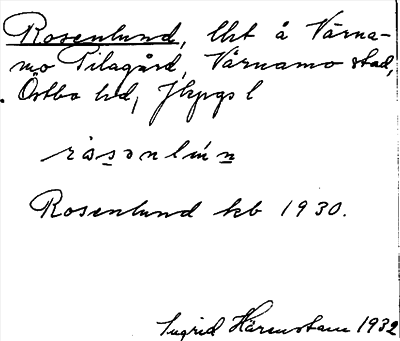 Rosenlund, lht å Värna-
mo Tilagård, Värnamo stad,
Östbo hd, Jkpgs l
råsənlún̲n̲
Rosenlund kb 1930.
Ingrid Härenstam 1932